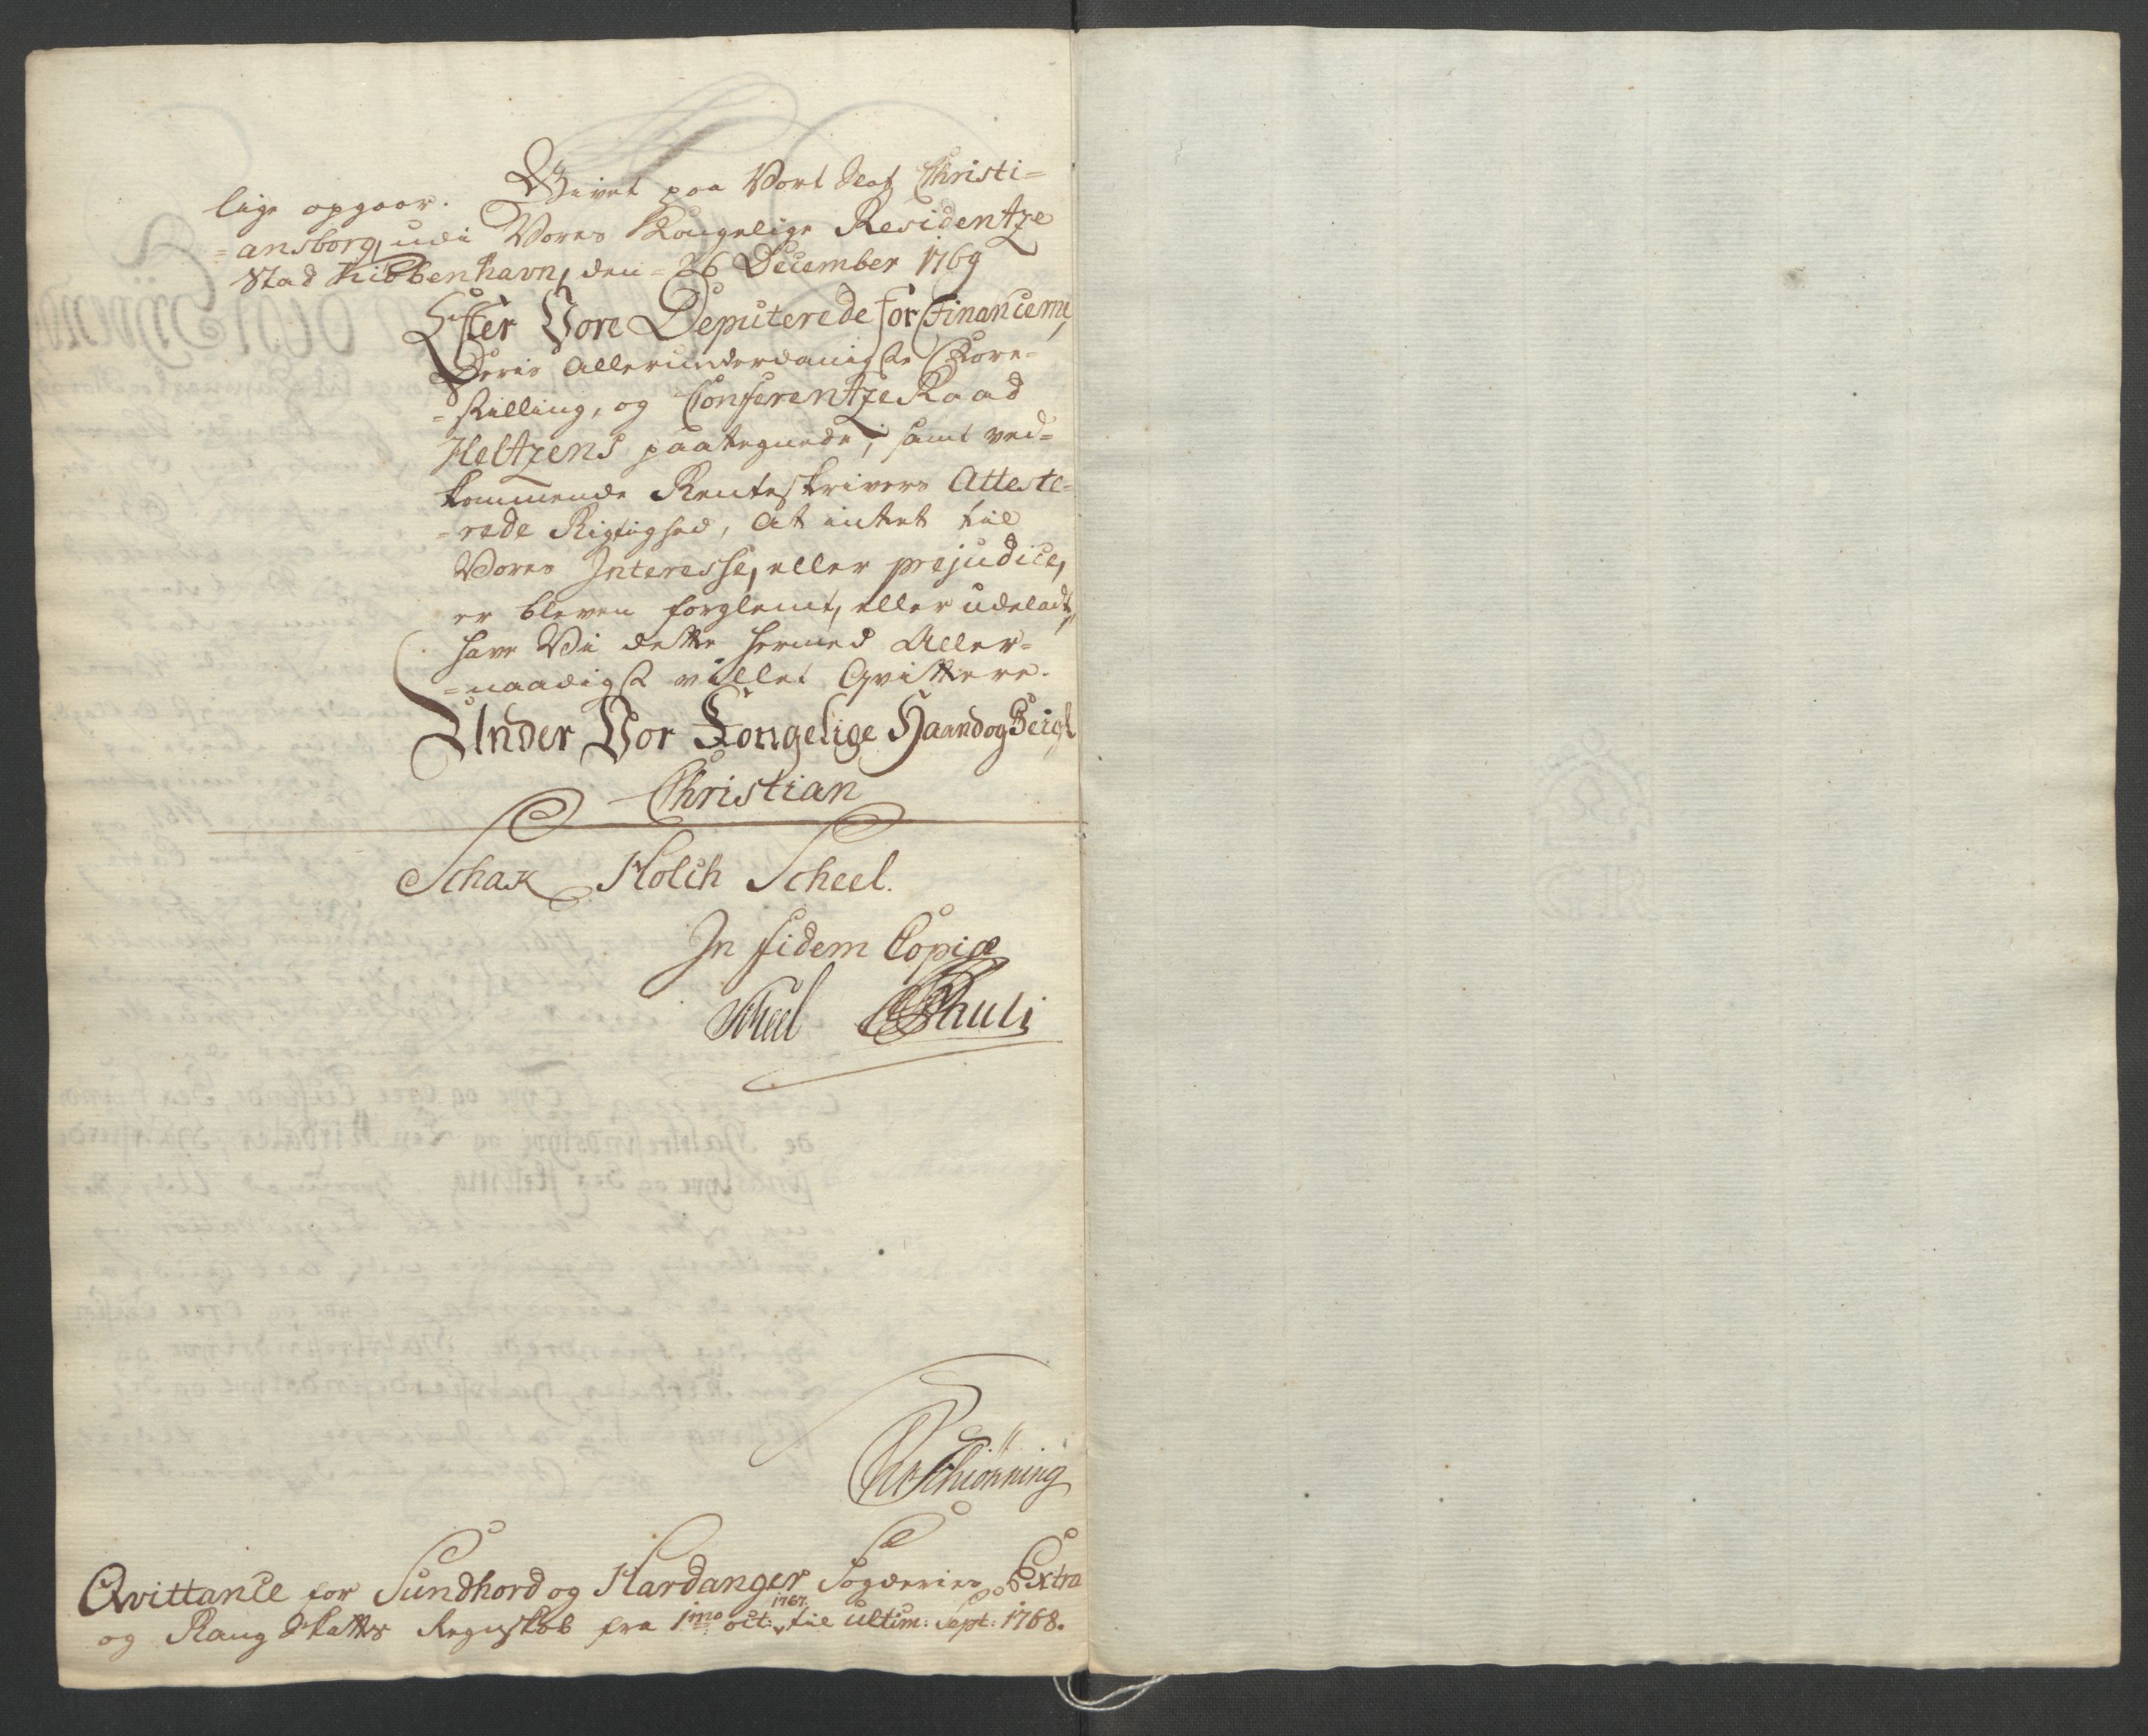 lige opgaar. Givet paa Vort Slot Christi=
=ansborg, udi Vores Kongelige Residentze
Stad Kiöbenhavn, den 26 December 1769
Efter Vore Deputerede for Financerne,
Deris Allerunderdanigste Fore=
=stilling, og Conferentze Raad
Heltzens paategnede, samt ved=
kommende Renteskrivers Atteste=
=rede Rigtighed, At intet til
Vores Interesse, eller prejudice,
er bleven forglemt, eller udeladt,
have Vi dette hermed Aller=
=naadigst villet Qvittere.
Under Vor Kongelige Haand og Seigl
Christian
Schak Holch Scheel.
In fidem Copiæ
Scheel
Schiönning
Qvittance for Sundhord og Hardanger Fogderies Extra
og Rang Skatts Regnskab fra 1mo oct: 1767. til ultim: Sept: 1768.